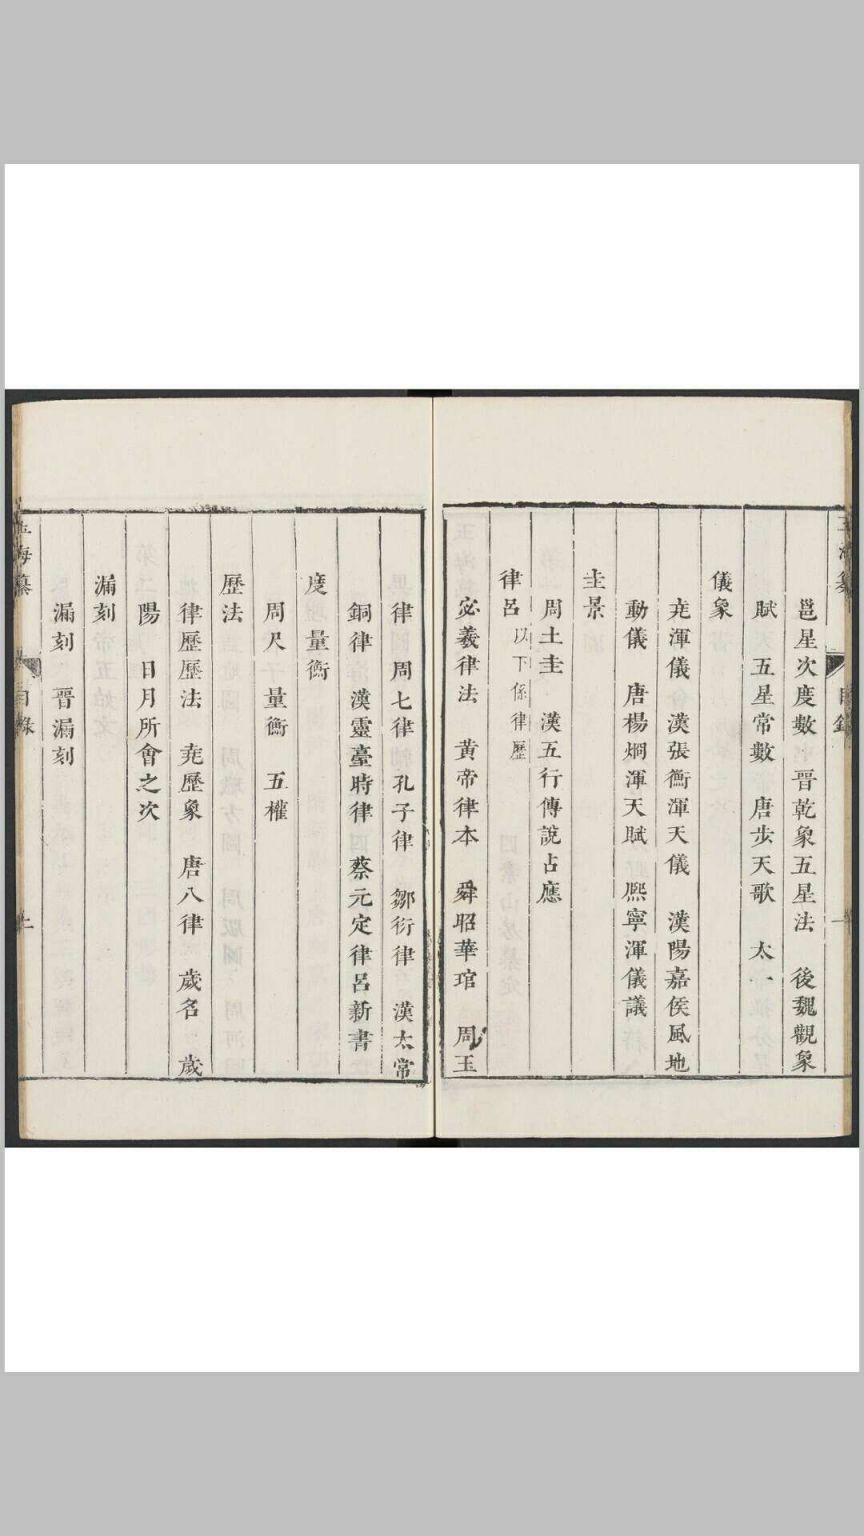 邕星次度數 晉乾象五星法 後魏觀象
賦 五星常數 唐步天歌 太一
儀象
堯渾儀 漢張衡渾天儀 漢陽嘉侯風地
動儀 唐楊烱渾天賦 熙寧渾儀議
圭景
周土圭 漢五行傳說占應
律呂 以下係律歷
宓羲律法 黃帝律本 舜昭華琯 周玉
律 周七律 孔子律 鄒衍律 漢太常
銅律 漢靈臺時律 蔡元定律呂新書
度量衡
周尺 量衡 五權
歷法
律歷歷法 堯歷象 唐八律 歲名 歲
陽 日月所會之次
漏刻
漏刻 晉漏刻